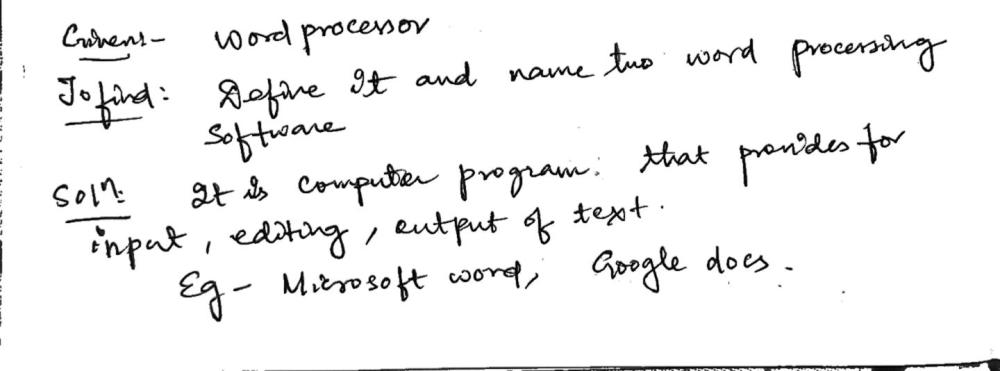 Given:- word processor
To find: Define It and name two word processing
Software
Soln: It is computer program. that provides for
input, editing, output of text.
Eg - Microsoft word, Google docs.